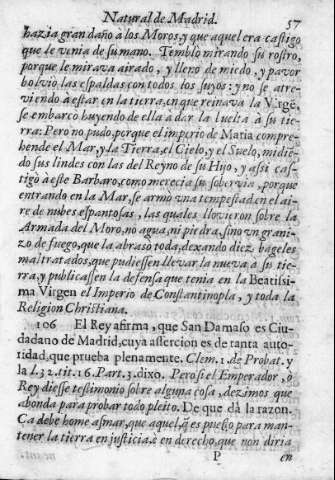 Natural de Madrid. 57
hazia gran daño à los Moros, y que aquel era castigo
que le venia de su mano. Temblò mirando su rostro,
porque le mirava airado, y lleno de miedo, y pavor
bolviò las espaldas con todos los suyos: y no se atre-
viendo à estar en la tierra, en que reinava la Virgē,
se embarcò huyendo de ella à dar la buelta à su tie-
rra: Pero no pudo, porque el imperio de Maria compre-
hende el Mar, y la Tierra, el Cielo, y el Suelo, midiē-
do sus lindes con las del Reyno de su Hijo, y assi cas-
tigò à este Barbaro, como merecia su sobervia, porque
entrando en la Mar, se armò vna tempestad en el ai-
re de nubes espantosas, las quales llovieron sobre la
Armada del Moro, no agua, ni piedra, sino vn grani-
zo de fuego, que la abrasò toda, dexando diez bageles
maltratados, que pudiessen llevar la nueva à su tie-
rra, y publicassen la defensa que tenia en la Beatissi-
ma Virgen el Imperio de Constantinopla, y toda la
Religion Christiana.
106 El Rey afirma, que San Damaso es Ciu-
dadano de Madrid, cuya assercion es de tanta auto-
ridad, que prueba plenamente. Clem. 1. de Probat. y
la l. 32. tit. 16. Part. 3. dixo. Pero si el Emperador, ò
Rey diesse testimonio sobre alguna cosa, dezimos que
abonda para probar todo pleito. De que dà la razon.
Ca debe home asmar, que aquel, q̃ es puesto para man-
tener la tierra en justicia, è en derecho, que non diria
P en